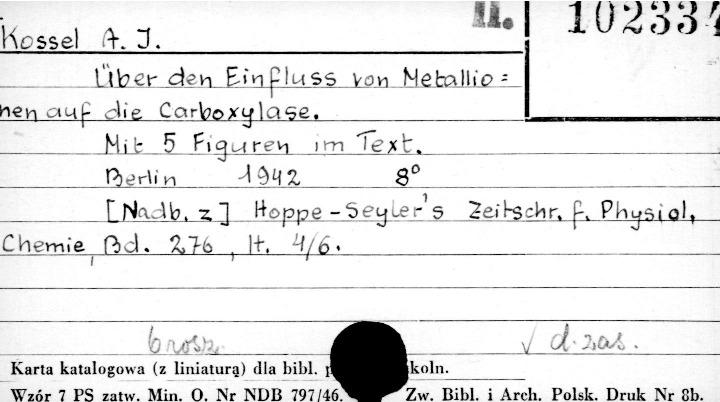 II. 102334
Kossel A. J.
Über den Einfluss von Metallio=
nen auf die Carboxylase.
Mit 5 Figuren im Text.
Berlin 1942 8°
[Nadb. z] Hoppe-Seyler's Zeitschr. f. Physiol.
Chemie, Bd. 276, H. 4/6.
brosz. √ d. zas.
Karta katalogowa (z liniaturą) dla bibl. koln.
Wzór 7 PS zatw. Min. O. Nr NDB 797/46. Zw. Bibl. i Arch. Polsk. Druk Nr 8b.